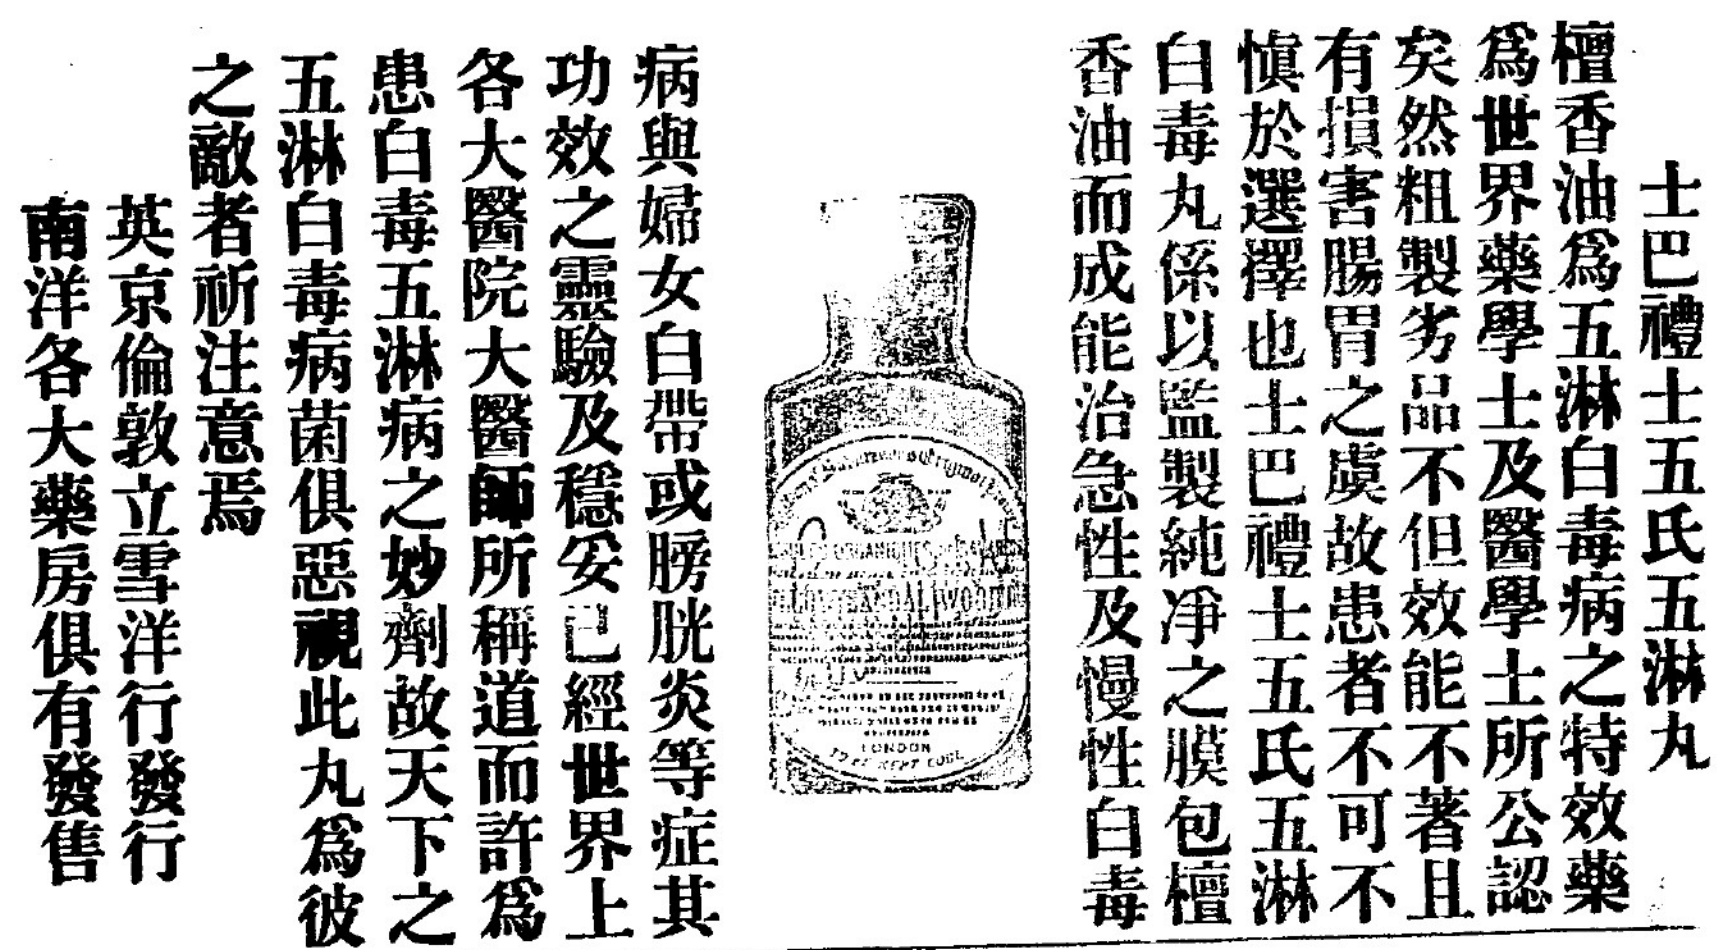 士巴禮士五氏五淋丸
檀香油爲五淋白毒病之特效藥
爲世界藥學士及醫學士所公認
矣然粗製劣品不但效能不著且
有損害腸胃之虞故患者不可不
愼於選擇也士巴禮士五氏五淋
白毒丸係以監製純凈之膜包檀
香油而成能治急性及慢性白毒
LONDON
病與婦女白帶或膀胱炎等症其
功效之靈驗及穩妥已經世界上
各大醫院大醫師所稱道而許爲
患白毒五淋病之妙劑故天下之
五淋白毒病菌俱惡視此丸爲彼
之敵者祈注意焉
英京倫敦立雪洋行發行
南洋各大藥房俱有發售